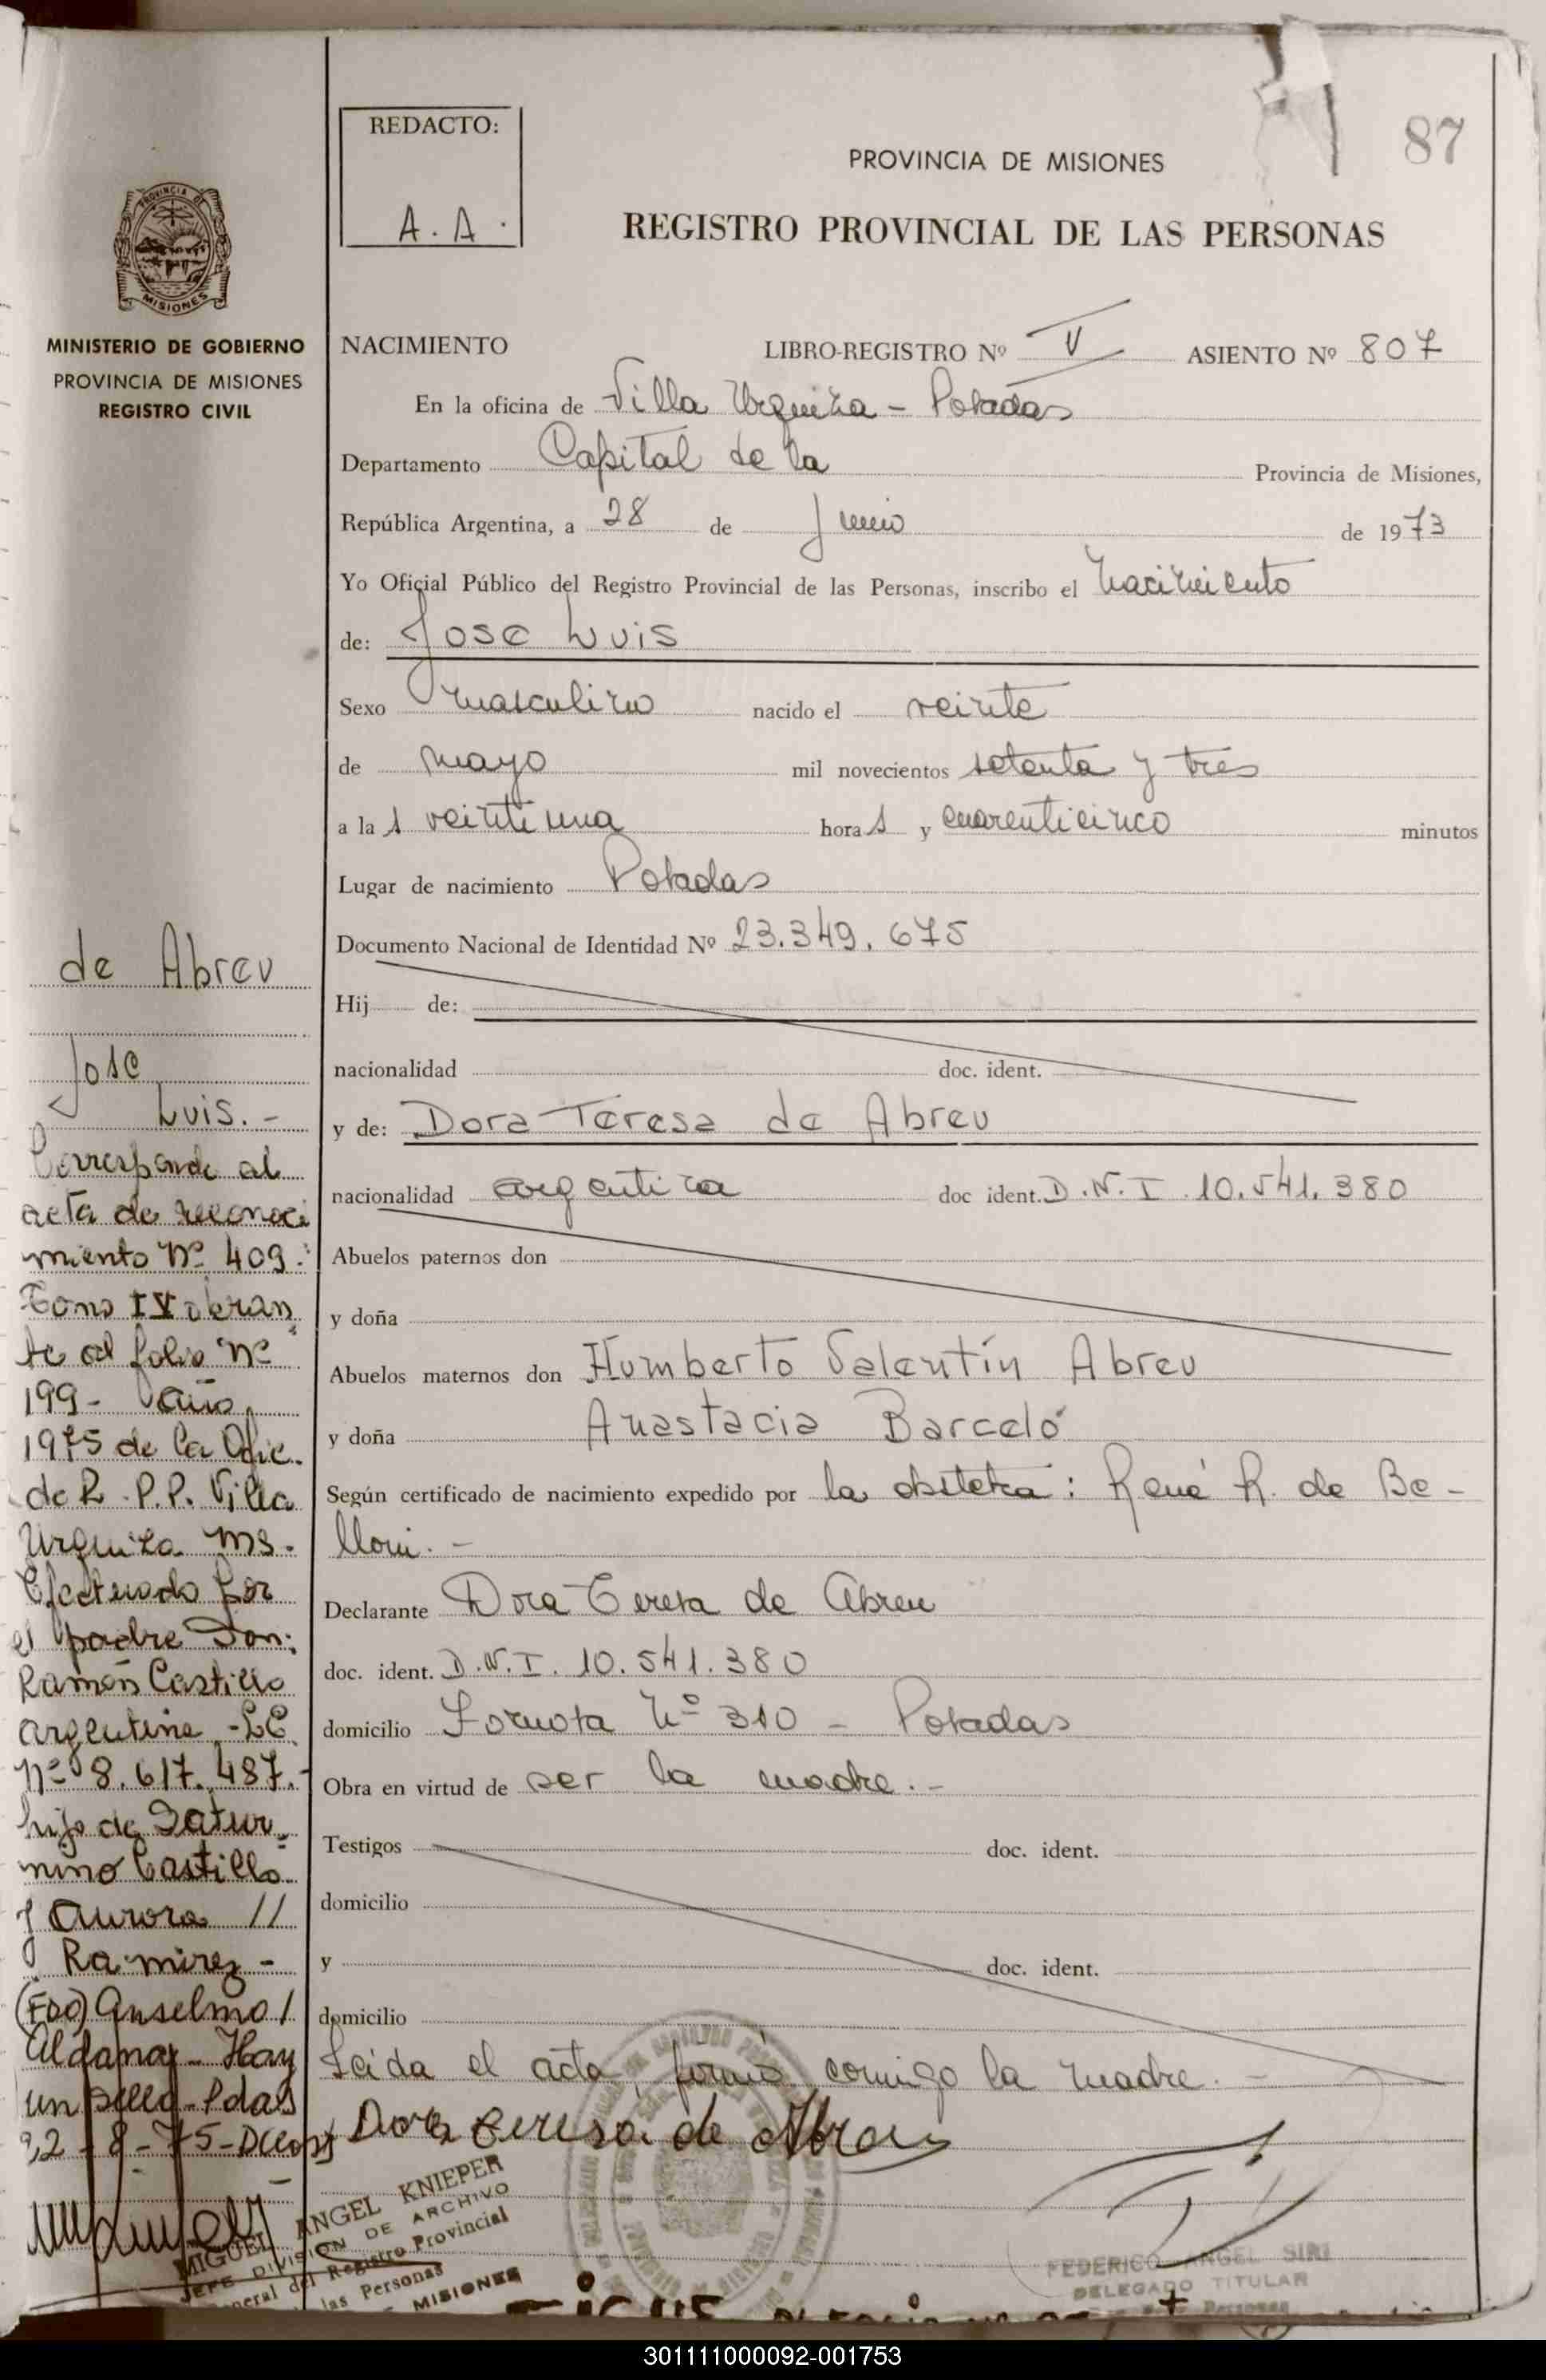 87
REDACTO:
A. A.
PROVINCIA DE MISIONES
REGISTRO PROVINCIAL DE LAS PERSONAS
PROVINCIA DE
MISIONES
MINISTERIO DE GOBIERNO
PROVINCIA DE MISIONES
REGISTRO CIVIL
NACIMIENTO LIBRO-REGISTRO Nº V ASIENTO Nº 807
En la oficina de Villa Urquiza - Posadas
Departamento Capital de la Provincia de Misiones,
República Argentina, a 28 de Junio de 1973
Yo Oficial Público del Registro Provincial de las Personas, inscribo el nacimiento
de: Jose Luis
Sexo masculino nacido el veinte
de mayo mil novecientos setenta y tres
a la s veintiuna hora s y cuarenticinco minutos
Lugar de nacimiento Posadas
Documento Nacional de Identidad Nº 23.349.675
Hij de:
nacionalidad doc. ident.
y de: Dora Teresa de Abreu
nacionalidad argentina doc ident. D.N.I. 10.541.380
Abuelos paternos don
y doña
Abuelos maternos don Humberto Valentín Abreu
y doña Anastacia Barceló
Según certificado de nacimiento expedido por la obstetra: René R. de Be-
lloni.-
Declarante Dora Teresa de Abreu
doc. ident. D.N.I. 10.541.380
domicilio Nº 310 - Posadas
Obra en virtud de ser la madre.-
Testigos doc. ident.
domicilio
y doc. ident.
domicilio
Leida el acta, firmó conmigo la madre.-
Dora Teresa de Abreu
de Abreu
Jose
Luis.-
Corresponde al
acta de reconoci
miento Nº 409.
Tomo IV obran
te al folio Nº
199- año
1975 de la Ofic.
de R.P.P. Villa
Urquiza Ms.
Efectuado por
el padre Don:
Ramón Castillo
argentino - LE
Nº 8.617.487.-
hijo de Satur
nino Castillo
y Aurora //
Ramirez -
(FDO) Anselmo /
Aldama - Hay
un sello - Pdas
22-8-75-
MIGUEL ANGEL KNIEPER
JEFE DIVISION DE ARCHIVO
General del Registro Provincial
las Personas
MISIONES
FEDERICO ANGEL SIRI
DELEGADO TITULAR
301111000092-001753